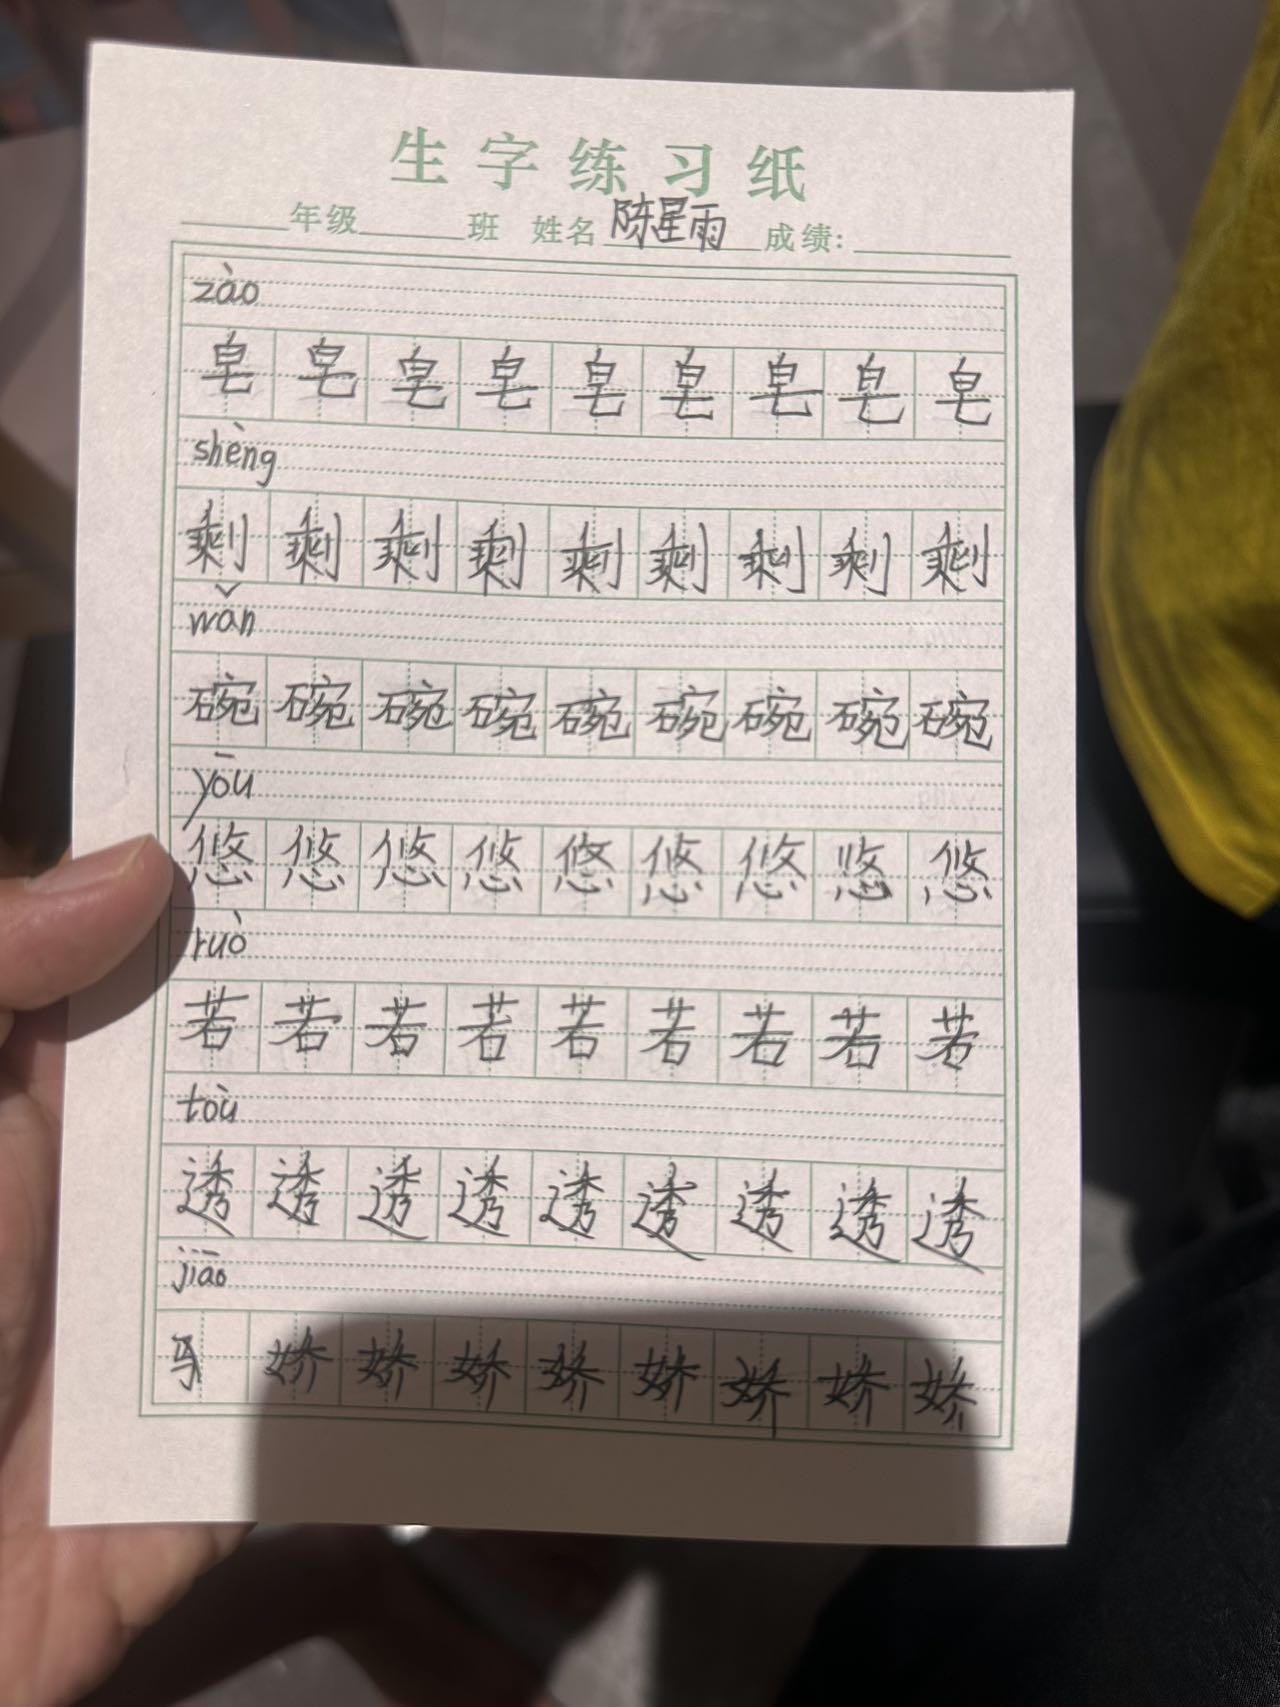 生字练习纸
年级 班 姓名 陈星雨 成绩:
zào
皂 皂 皂 皂 皂 皂 皂 皂 皂
shèng
剩 剩 剩 剩 剩 剩 剩 剩 剩
wǎn
碗 碗 碗 碗 碗 碗 碗 碗 碗
yōu
悠 悠 悠 悠 悠 悠 悠 悠 悠
ruò
若 若 若 若 若 若 若 若 若
toù
透 透 透 透 透 透 透 透 透
jiāo
娇 娇 娇 娇 娇 娇 娇 娇